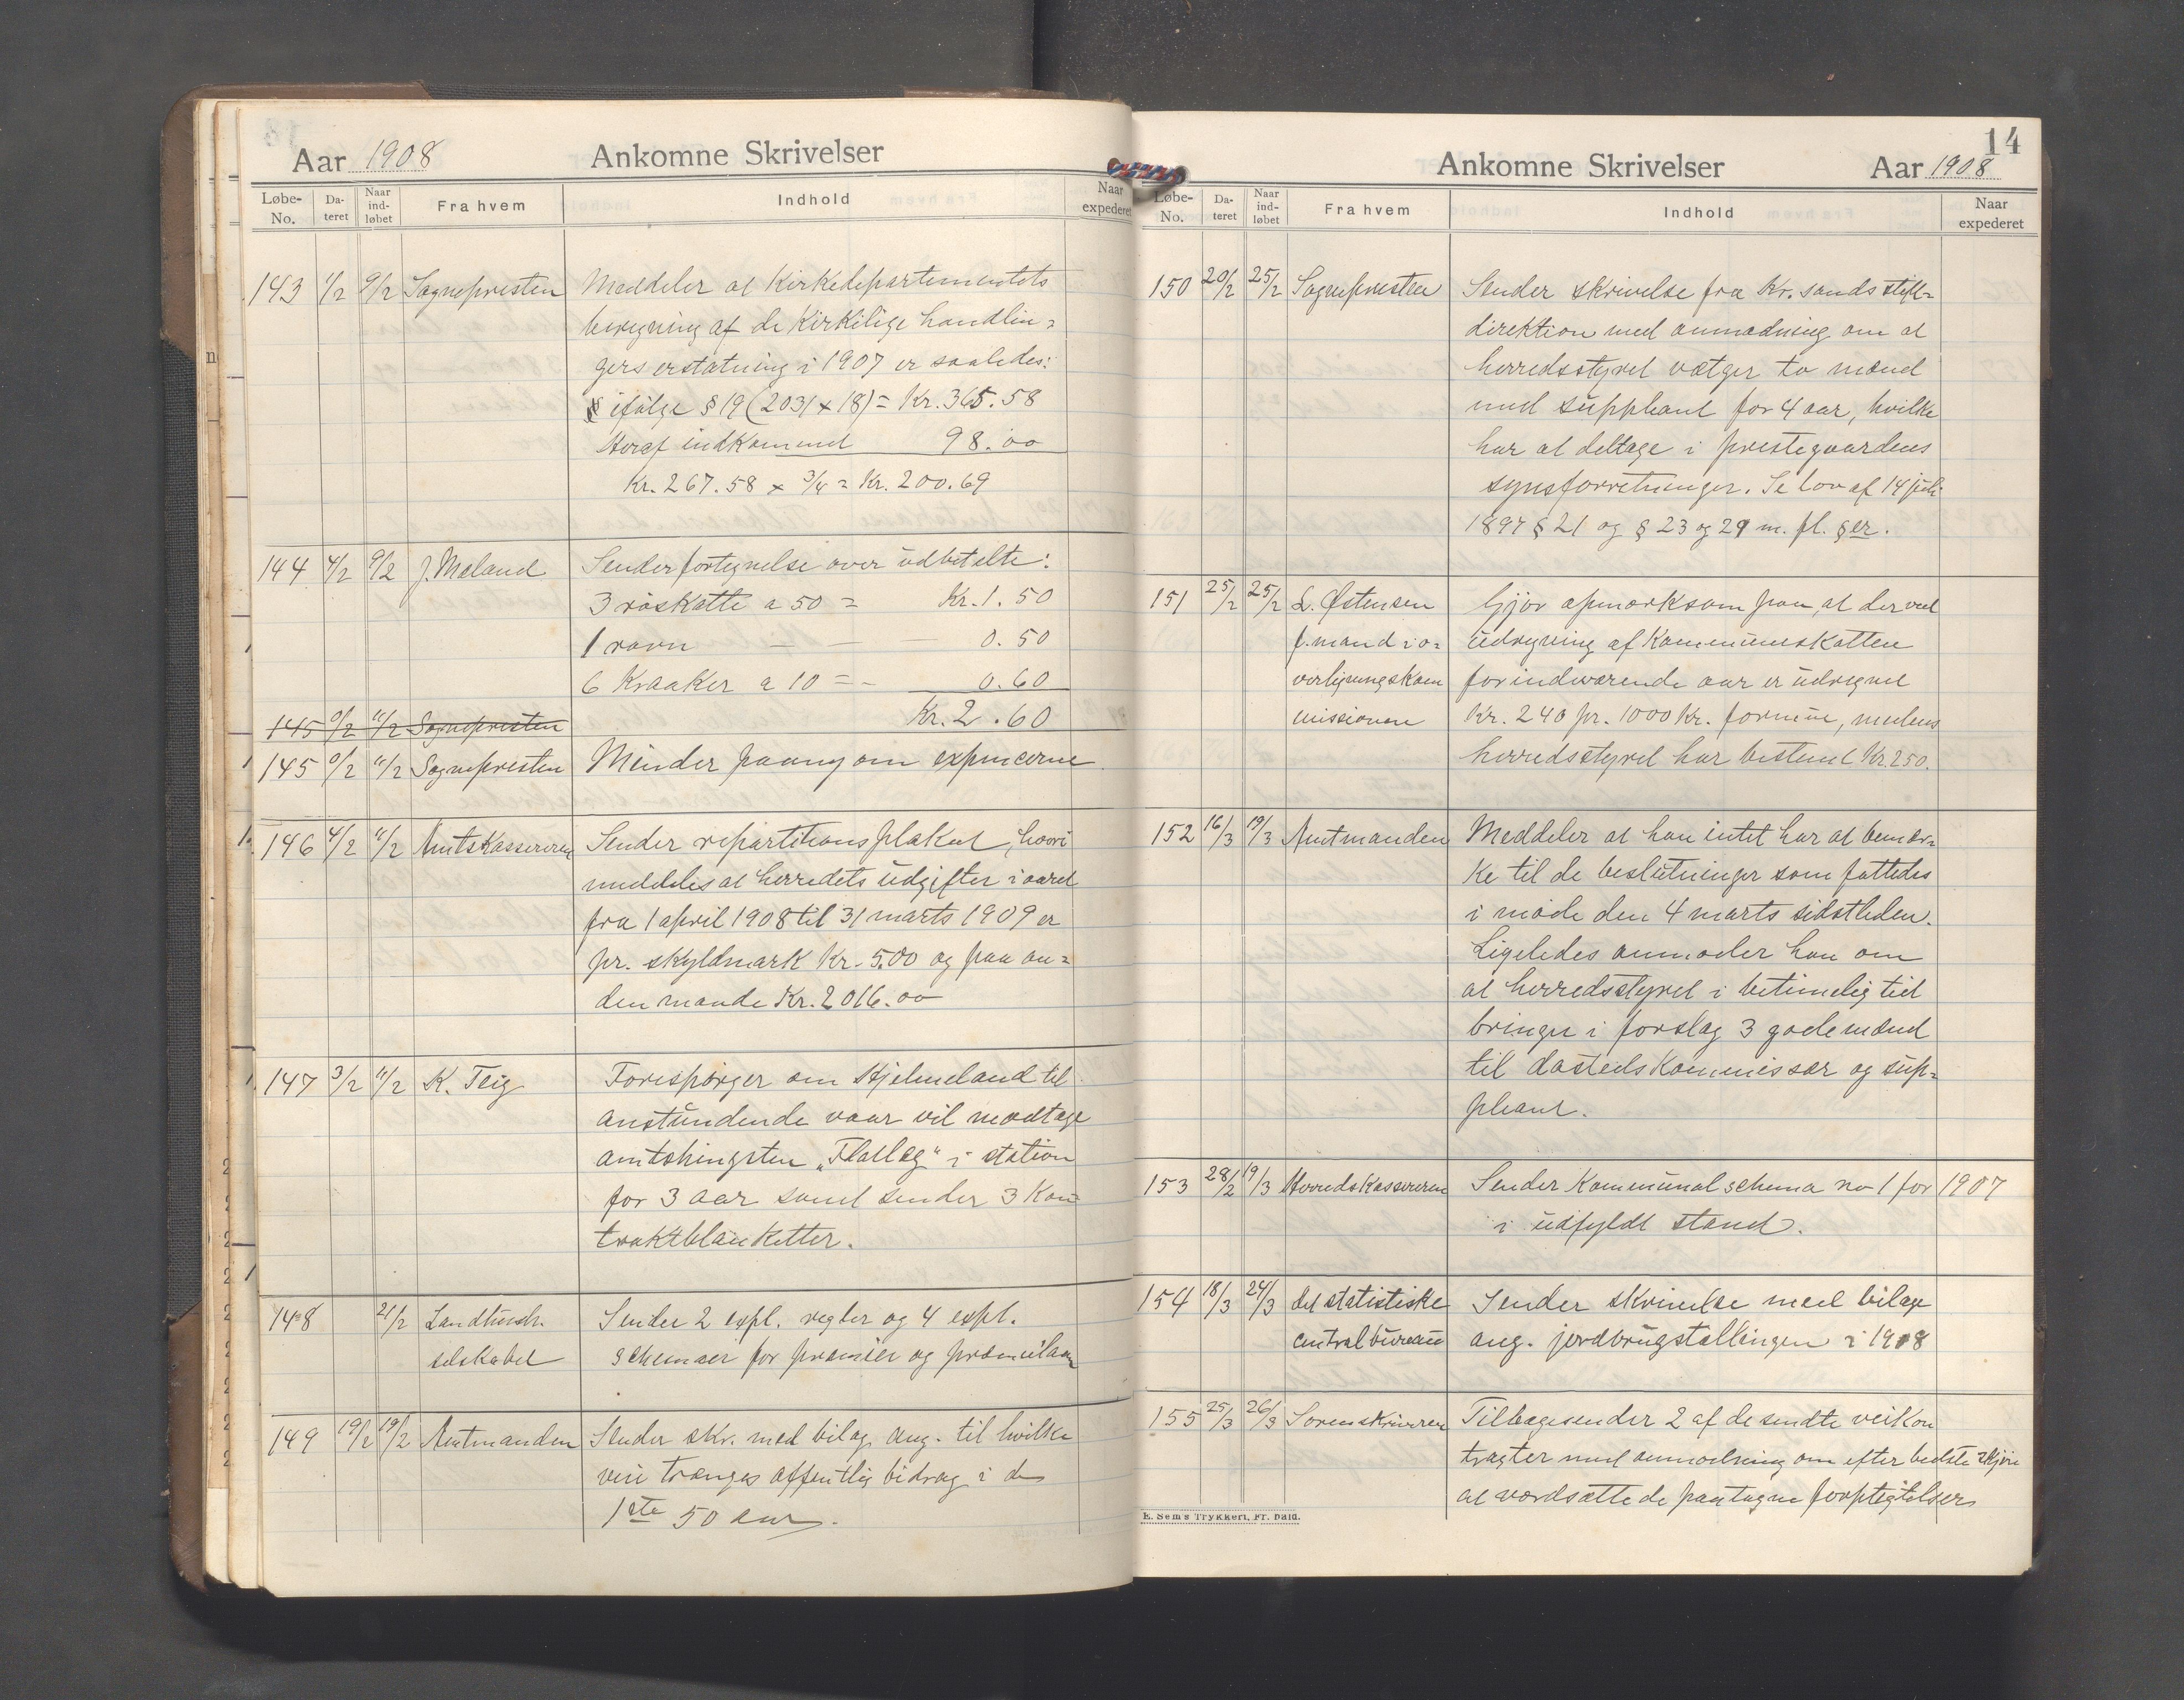 Aar 1908 Ankomne Skrivelser
Løbe-No. Da-teret Naar ind-løbet Fra hvem Indhold Naar expederet
143 1/2 9/2 Sognepresten Meddeler at Kirkedepartementets
beregning af de Kirkilige handlin=
gers erstatning i 1907 er saaledes:
ifølge § 19 (2031 x 18) = Kr. 365.58
Heraf indkommet 98.00
Kr. 267.58 x 3/4 = Kr. 200.69
144 4/2 9/2 J. Mæland Sender fortegnelse over udbetalte:
3 røskatte a 50 = Kr. 1.50
1 ravn — — 0.50
6 Kraaker a 10 = - 0.60
145 9/2 11/2 Sognepresten Kr. 2.60
145 9/2 11/2 Sognepresten Minder paany om expencerne
146 4/2 11/2 Amtskassereren Sender repartitionsplakat, hvori
meddeles at herredets udgifter i aaret
fra 1 april 1908 til 31 marts 1909 er
pr. skyldmark Kr. 5.00 og paa an=
den maade Kr. 2016.00
147 3/2 11/2 K. Teig Forespørger om Hjelmeland til
anstundende vaar vil modtage
amtshingsten „Flatlag" i station
for 3 aar samt sender 3 Kon
traktblanketter.
148 21/2 Landhush. Sender 2 expl. regler og 4 expl.
selskabet schemaer for præmier og præmielaan
149 19/2 19/2 Amtmanden Sender skr. med bilag ang. til hvilke
veie trænges offentlig bidrag i de
1ste 50 aar.
14
Ankomne Skrivelser Aar 1908
Løbe-No. Da-teret Naar ind-løbet Fra hvem Indhold Naar expederet
150 20/2 25/2 Sognepresten Sender skrivelse fra Kr.sands stift=
direktion med anmodning om at
herredsstyret vælger to mænd
med suppleant for 4 aar, hvilke
har at deltage i prestegaardens
synsforretninger. Se lov af 14 juli
1897 § 21 og § 23 og 29 m. fl. §er.
151 25/2 25/2 L. Østensen Gjør opmerksom paa, at der ved
f.mand i o= udregning af Kommuneskatten
verligningskom forindeværende aar er udregnet
missionen Kr. 240 pr. 1000 Kr. formue, medens
herredsstyret har bestemt Kr. 250.
152 16/3 19/3 Amtmanden Meddeler at han intet har at bemær=
ke til de beslutninger som fattedes
i møde den 4 marts sidstleden.
Ligeledes anmoder han om
at herredsstyret i betimelig tid
bringer i forslag 3 gode mænd
til Kommissær og sup=
pleant.
153 28/2 19/3 Herredskassereren Sender Kommunal schema no 1 for 1907
i udfyldt stand.
154 18/3 24/3 det statistiske Sender skrivelse med bilage
centralbureau ang. jordbrugstællingen i 1908
155 25/3 26/3 Sorenskriveren Tilbagesender 2 af de sendte veikon
tragter med anmodning om efter bedste skjøn
at værdsætte de paatagne forpligtelser
E. Sem's Trykkeri, Fr. hald.